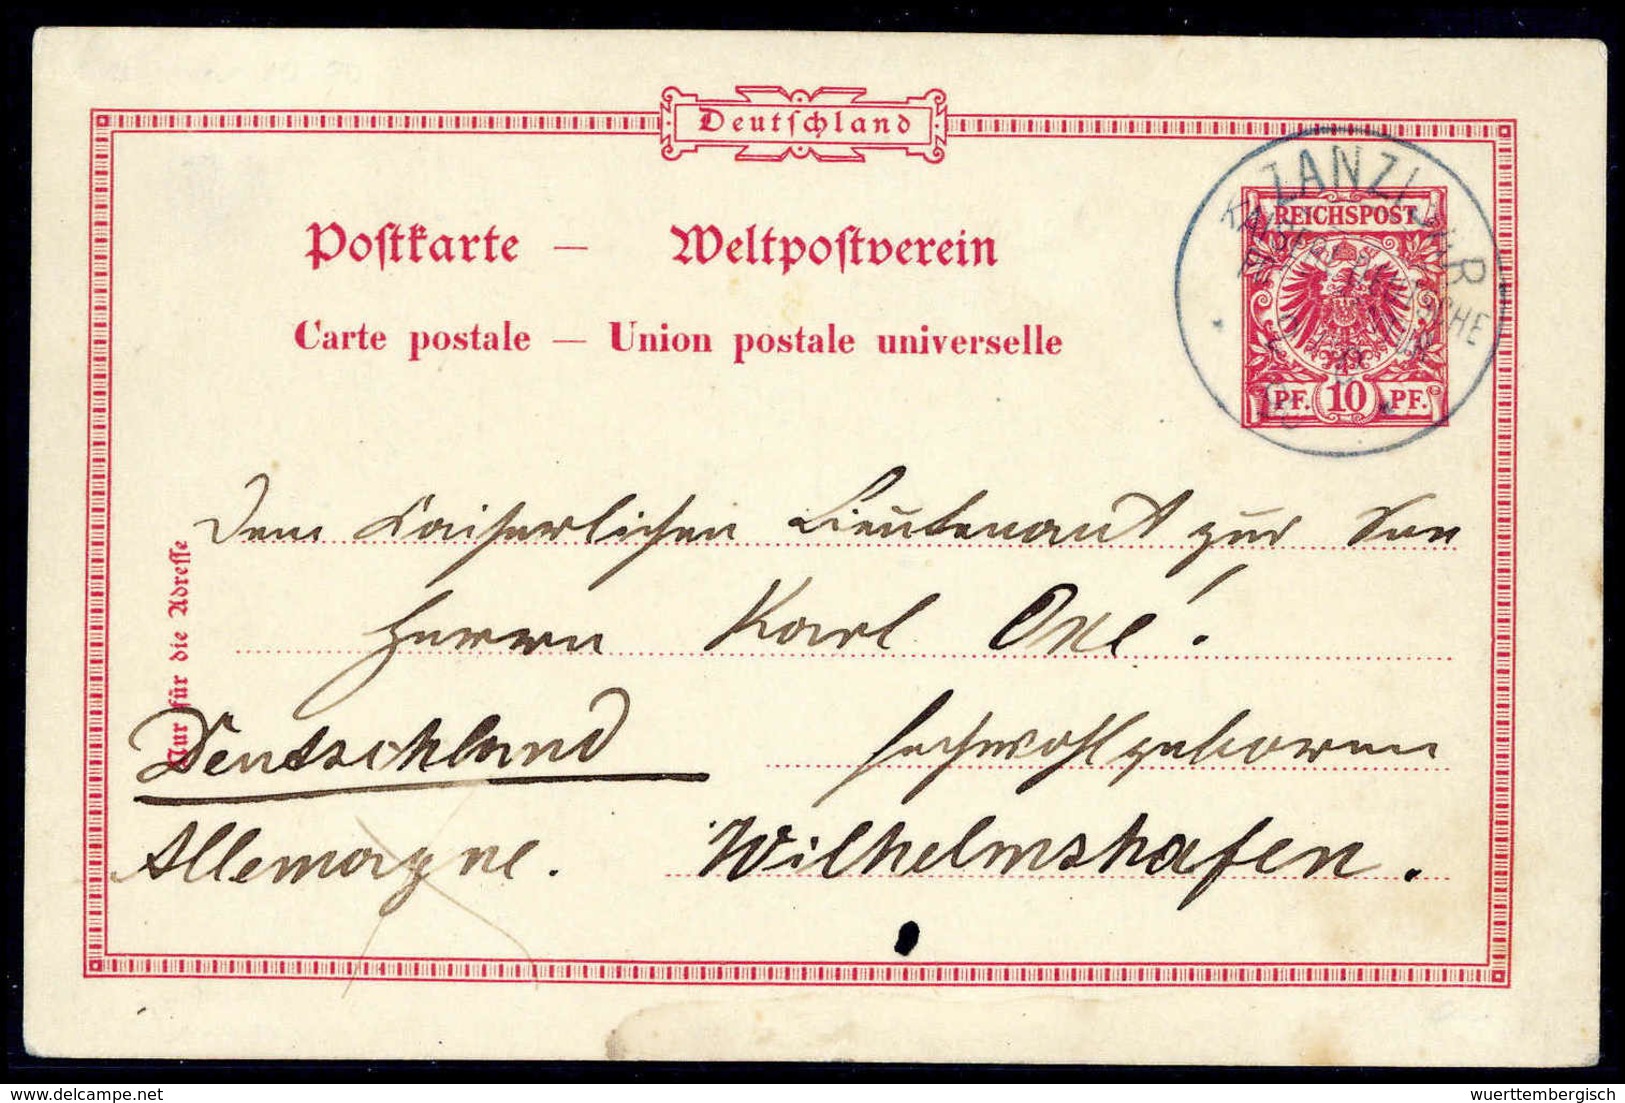 Deutschland
ZANZIBAR
KAISERL. DEUTSCHE
REICHSPOST
PF. 10 PF.
Poſtkarte — Weltpoſtverein
Carte postale — Union postale universelle
Nur für die Adreſſe
Dem Kaiserlichen Lieutenant zur See
Herrn Karl Oxé!
Deutschland
hochwohlgeboren
Allemagne.
Wilhelmshafen.
wuerttembergisch